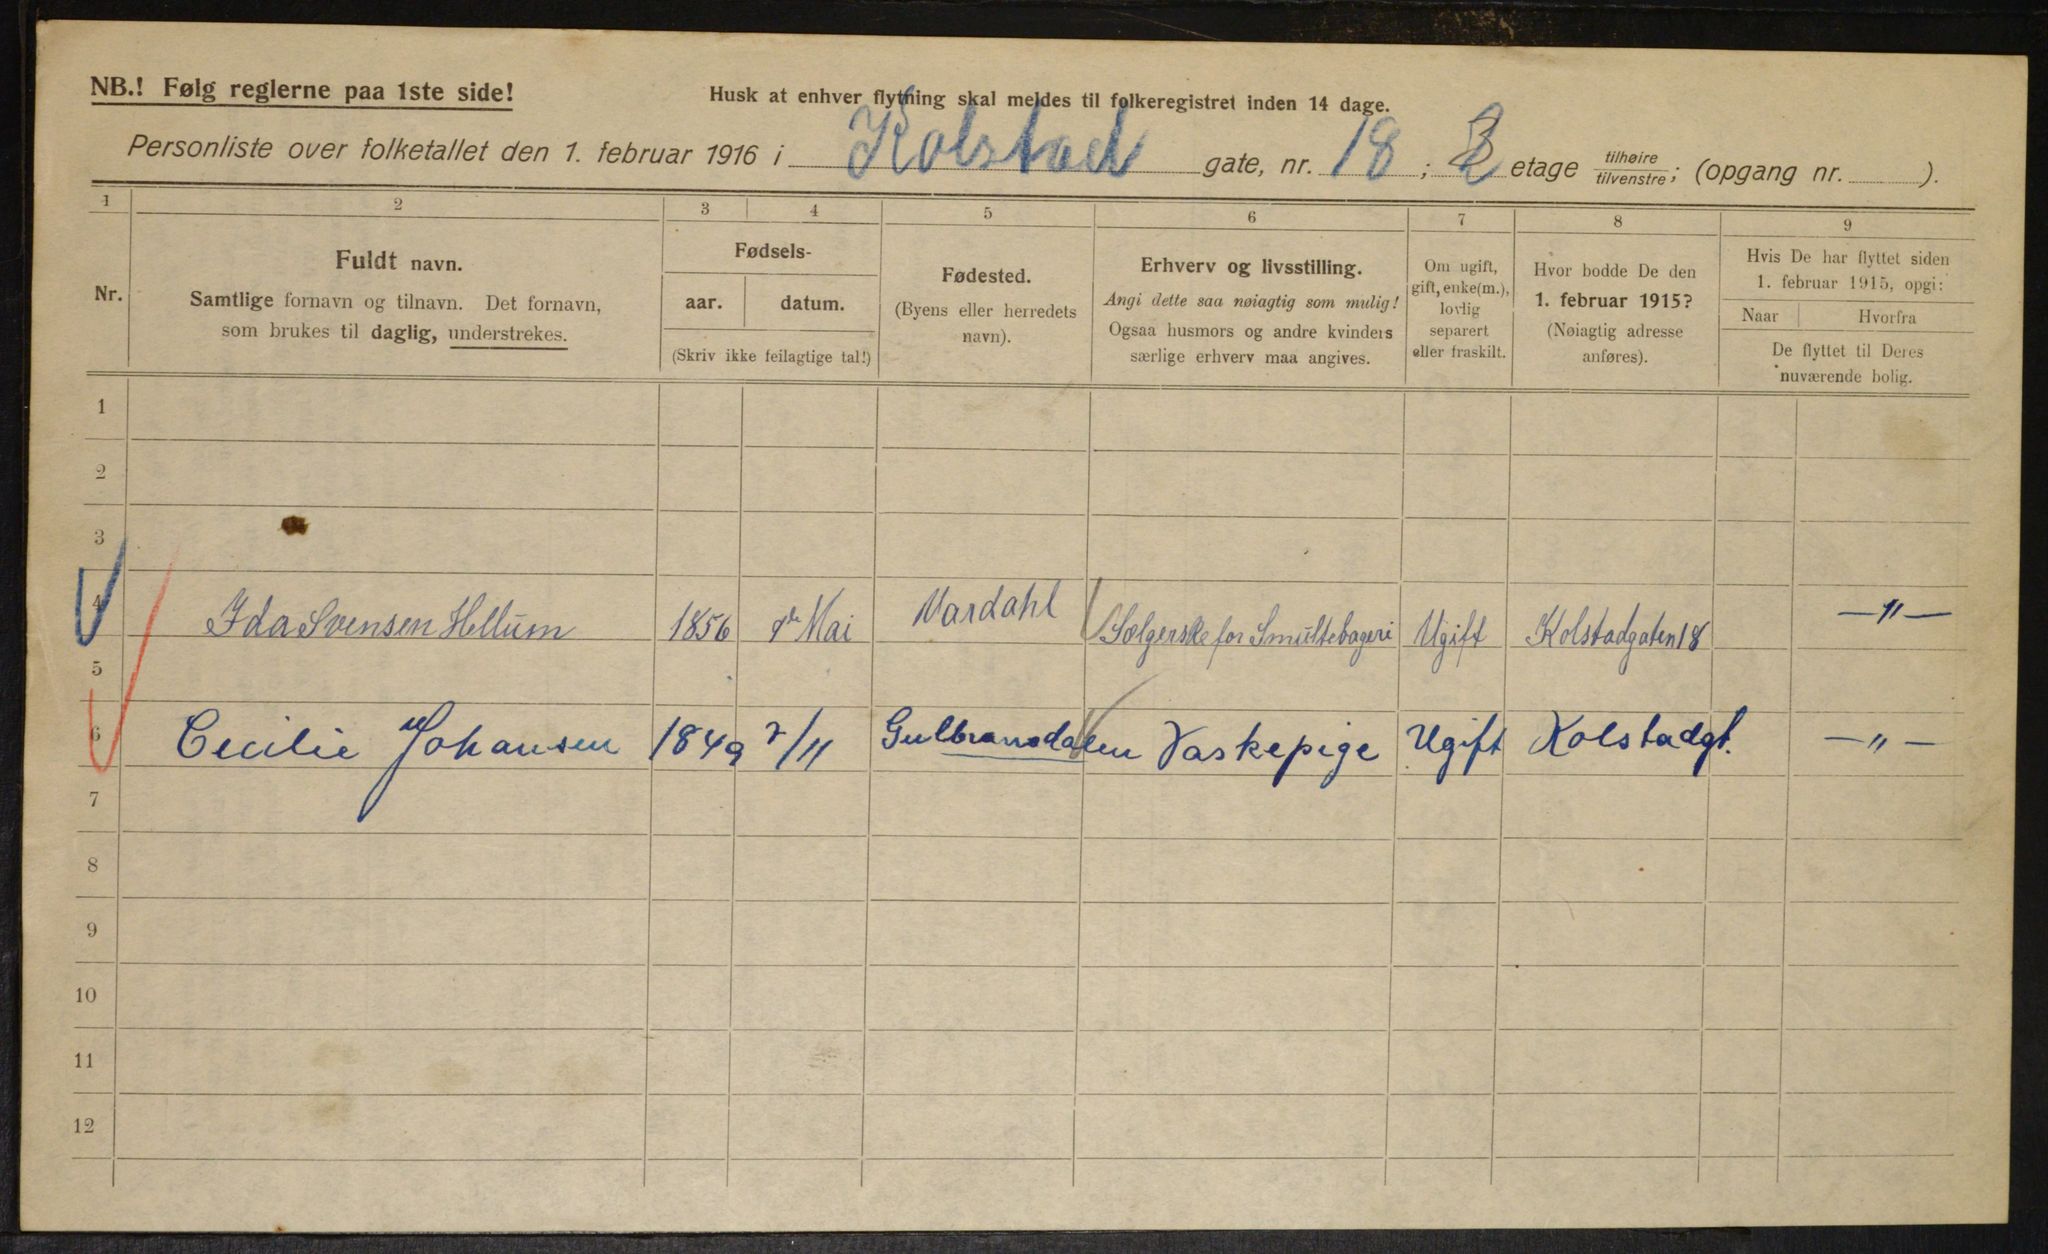 NB.! Følg reglerne paa 1ste side!
Husk at enhver flytning skal meldes til folkeregistret inden 14 dage.
Personliste over folketallet den 1. februar 1916 i Kolstad gate, nr. 18; etage tilhøire/tilvenstre; (opgang nr. ).
1 2 3 4 5 6 7 8 9
Nr.
Fuldt navn.
Samtlige fornavn og tilnavn. Det fornavn,
som brukes til daglig, understrekes.
Fødsels-
aar. datum.
(Skriv ikke feilagtige tal!)
Fødested.
(Byens eller herredets
navn).
Erhverv og livsstilling.
Angi dette saa nøiagtig som mulig!
Ogsaa husmors og andre kvinders
særlige erhverv maa angives.
Om ugift,
gift, enke(m.),
lovlig
separert
eller fraskilt.
Hvor bodde De den
1. februar 1915?
(Nøiagtig adresse
anføres).
Hvis De har flyttet siden
1. februar 1915, opgi:
Naar Hvorfra
De flyttet til Deres
nuværende bolig.
1
2
3
4 Ida Svensen Hellum 1856 Mai Vardahl Sælgerske for Smultebageri Ugift Kolstadgaten 18 — " —
5
6 Cecilie Johansen 1849 2/11 Gulbransdalen Vaskepige Ugift Kolstadgt. — " —
7
8
9
10
11
12